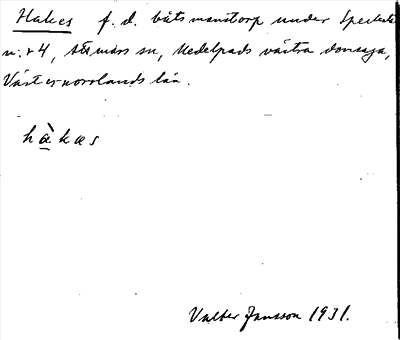 Hakes f. d. båtsmanstorp under
n:r 4, sn, Medelpads västra domsaga,
Västernorrlands län.
hàkas
Valter Jansson 1931.